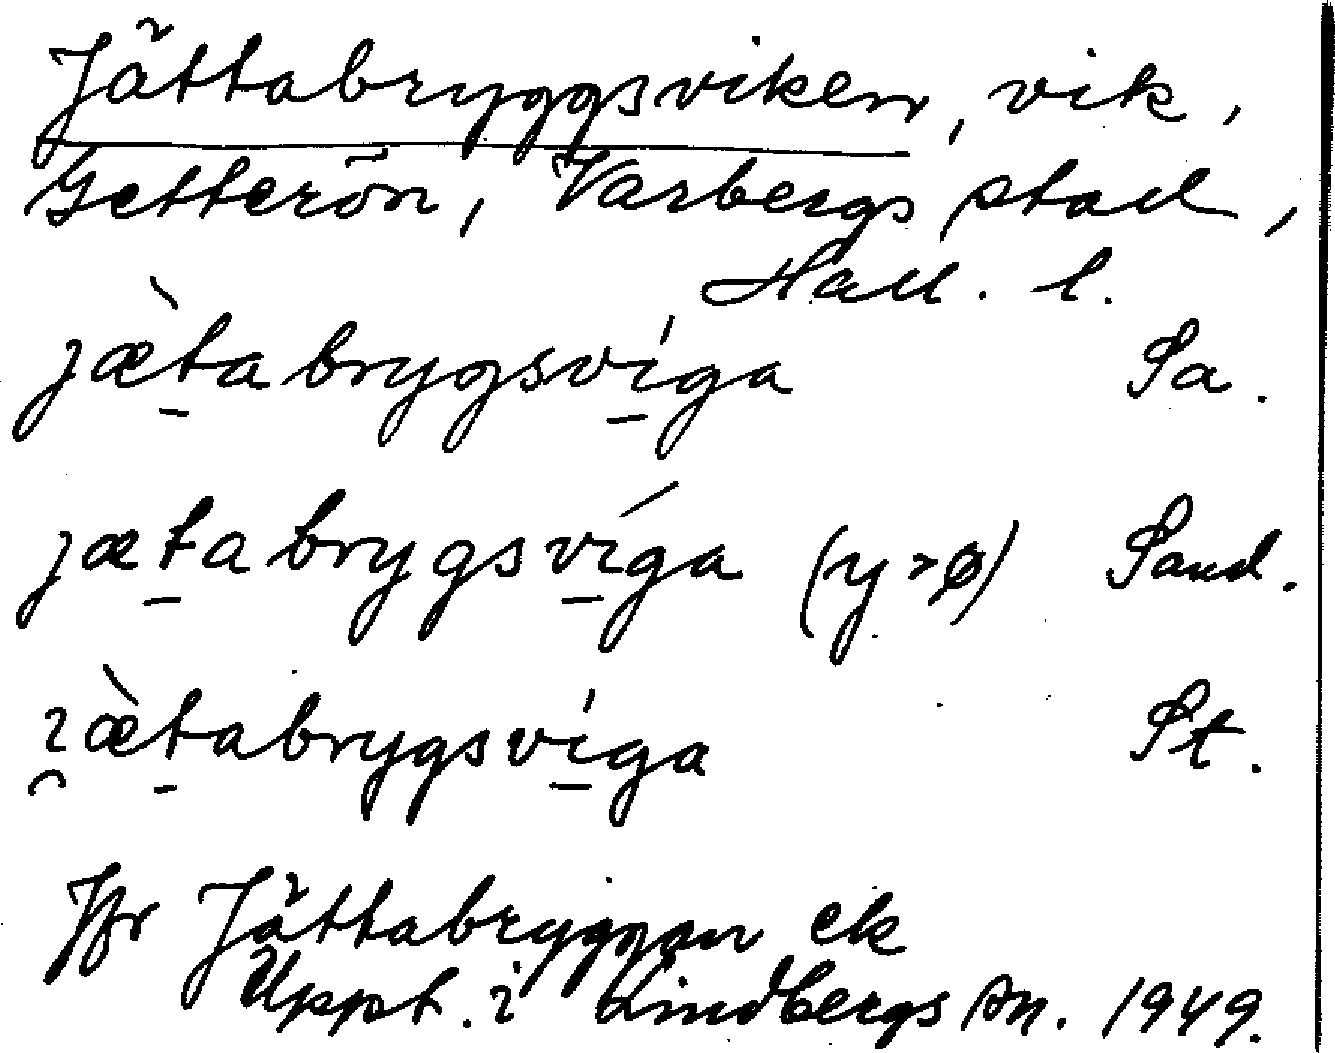 Jättabryggsviken, vik,
Getterön, Varbergs stad,
Hall. l.
jæ̀ta brygsvíga Sa.
jæta brygsvíga (y>ø) Sand.
ɿæ̀tabrygsvíga St.
Jfr Jättabryggan ek
Uppt. i Lindbergs An. 1949.